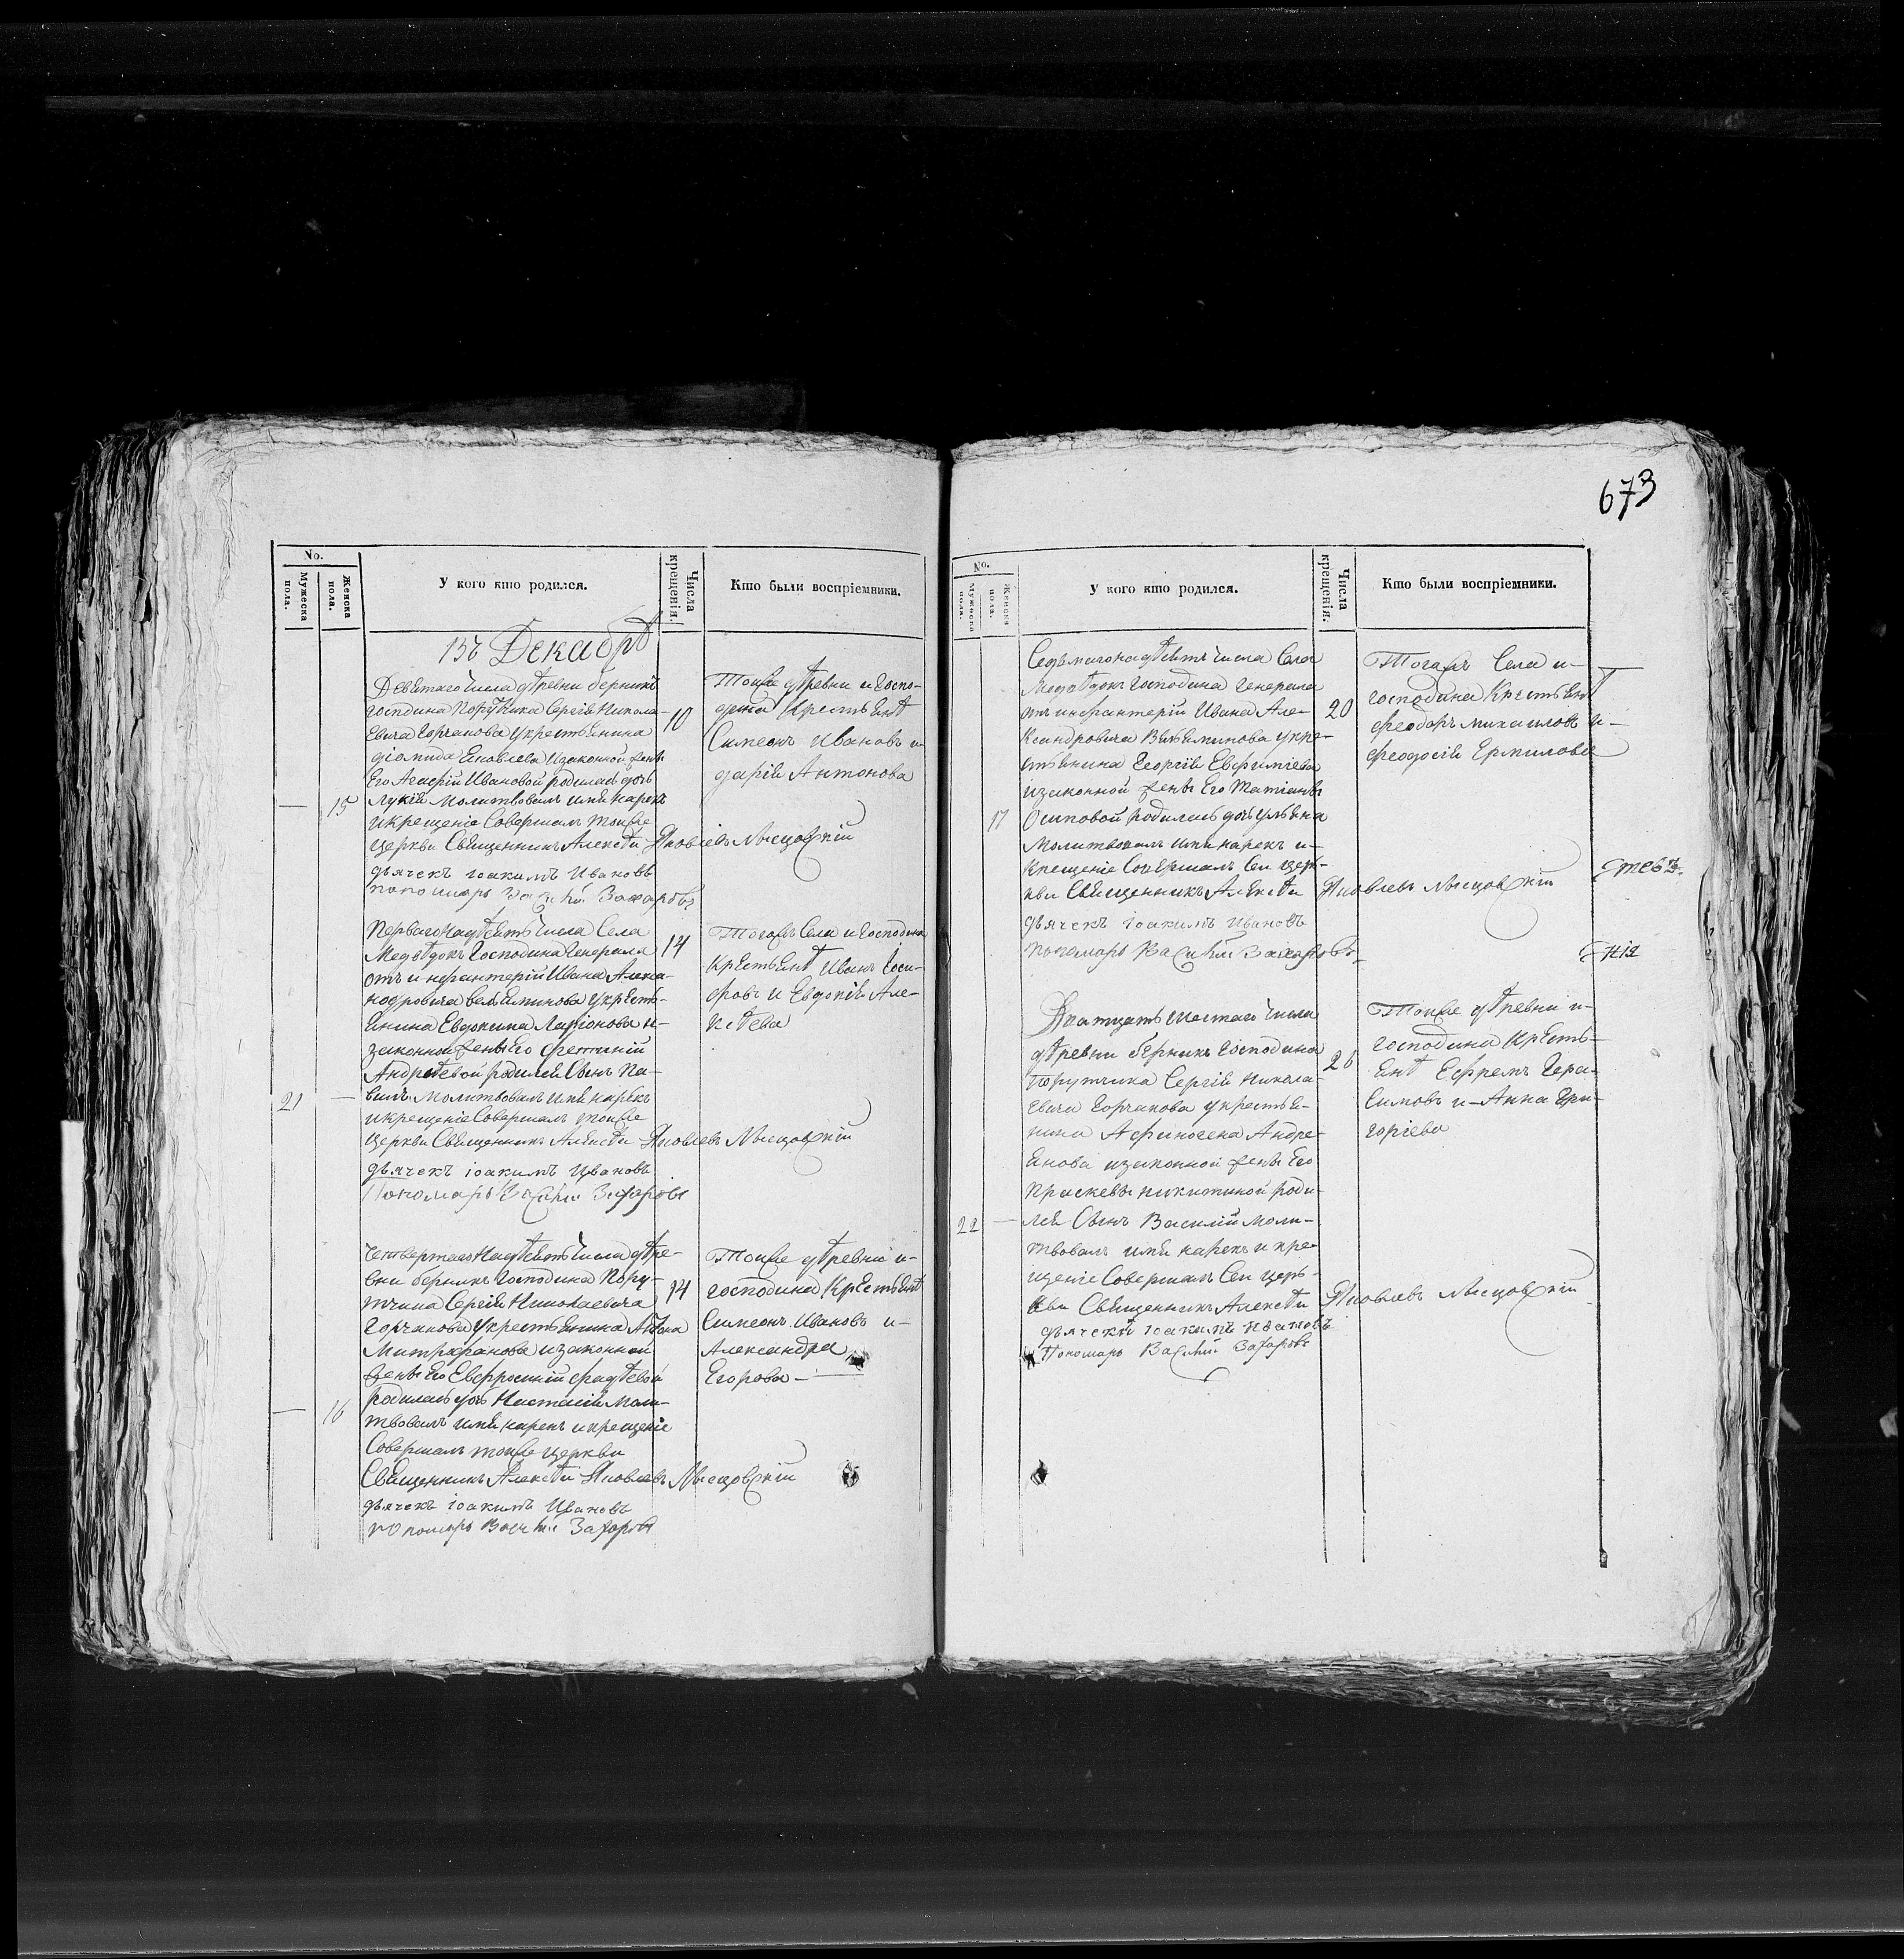 673
No.
Мужеска пола.
Женска пола.
У кого кто родился.
Числа крещенія.
Кто были воспріемники.
Въ Декабрѣ
Девятаго числа деревни берникъ
господина Порутчика Сергія Никола-
евича Горчакова у крестьянина
Яковлева и законной жены
его Ивановой родилась дочь
15
Лукія молитвовалъ имя нарекъ
и крещеніе совершалъ тоя же
церкви священникъ Алексѣй Яковлевъ
дьячекъ іоакимъ Ивановъ
пономарь Василій Захаровъ
10
Тоя же деревни и госпо-
дина крестьянѣ
Симеонъ Ивановъ и
дарія Антонова
Первагонадесять числа Села
Медвѣдокъ Господина Генерала
отъ инфантеріи Ивана Алекса-
ндровича Вельяминова у кресть-
янина Евдокима Ларіонова и
законной жены его
Андреевой родился сынъ Па-
21
велъ молитвовалъ имя нарекъ
и крещеніе совершалъ тоя же
церкви священникъ Алексѣй Яковлевъ
дьячекъ іоакимъ Ивановъ
Пономарь Василій Захаровъ
14
Тогожъ Села и Господина
крестьянѣ Иванъ Іоси-
фовъ и Евдокія Але-
ксѣева
Четвертагонадесять числа дере-
вни берникъ Господина Пору-
тчика Сергія Николаевича
Горчакова у крестьянина Антона
Митрофанова и законной
жены его Евфросиніи Фадѣевой
16
родилась дочь Настасія моли-
твовалъ имя нарекъ и крещеніе
совершалъ тоя же церкви
Священникъ Алексѣй Яковлевъ
дьячекъ іоакимъ Ивановъ
пономарь Василій Захаровъ
14
Тоя же деревни и
господина крестьянѣ
Симеонъ Ивановъ и
Александра
Егорова
No.
Мужеска пола.
Женска пола.
У кого кто родился.
Числа крещенія.
Кто были воспріемники.
Седьмагонадесять числа Села
Медвѣдокъ господина Генерала
отъ инфантеріи Ивана Але-
ксандровича Вельяминова у кре-
стьянина Георгія Евфиміева
и законной жены его Татіаны
17
Осиповой родилась дочь ульяна
молитвовалъ имя нарекъ и
крещеніе совершалъ сей цер-
кви Священникъ Алексѣй Яковлевъ
дьячекъ іоакимъ Ивановъ
пономарь Василій Захаровъ
20
Тогожъ Села и
господина крестьянѣ
феодоръ михаиловъ и
феодосія Ермилова
Дватцать шестаго числа
деревни берникъ господина
Порутчика Сергія Никола-
евича Горчакова у крестья-
нина Афиногена Андре-
янова и законной жены его
Праскевы никитиной роди-
22
лся сынъ Василій моли-
твовалъ имя нарекъ и кре-
щеніе совершалъ сей цер-
кви Священникъ Алексѣй Яковлевъ
дьячекъ іоакимъ Ивановъ
Пономарь Василій Захаровъ
26
Тоя же деревни и
господина кресть-
янѣ Ефремъ Гера-
симовъ и Анна Гри-
горіева